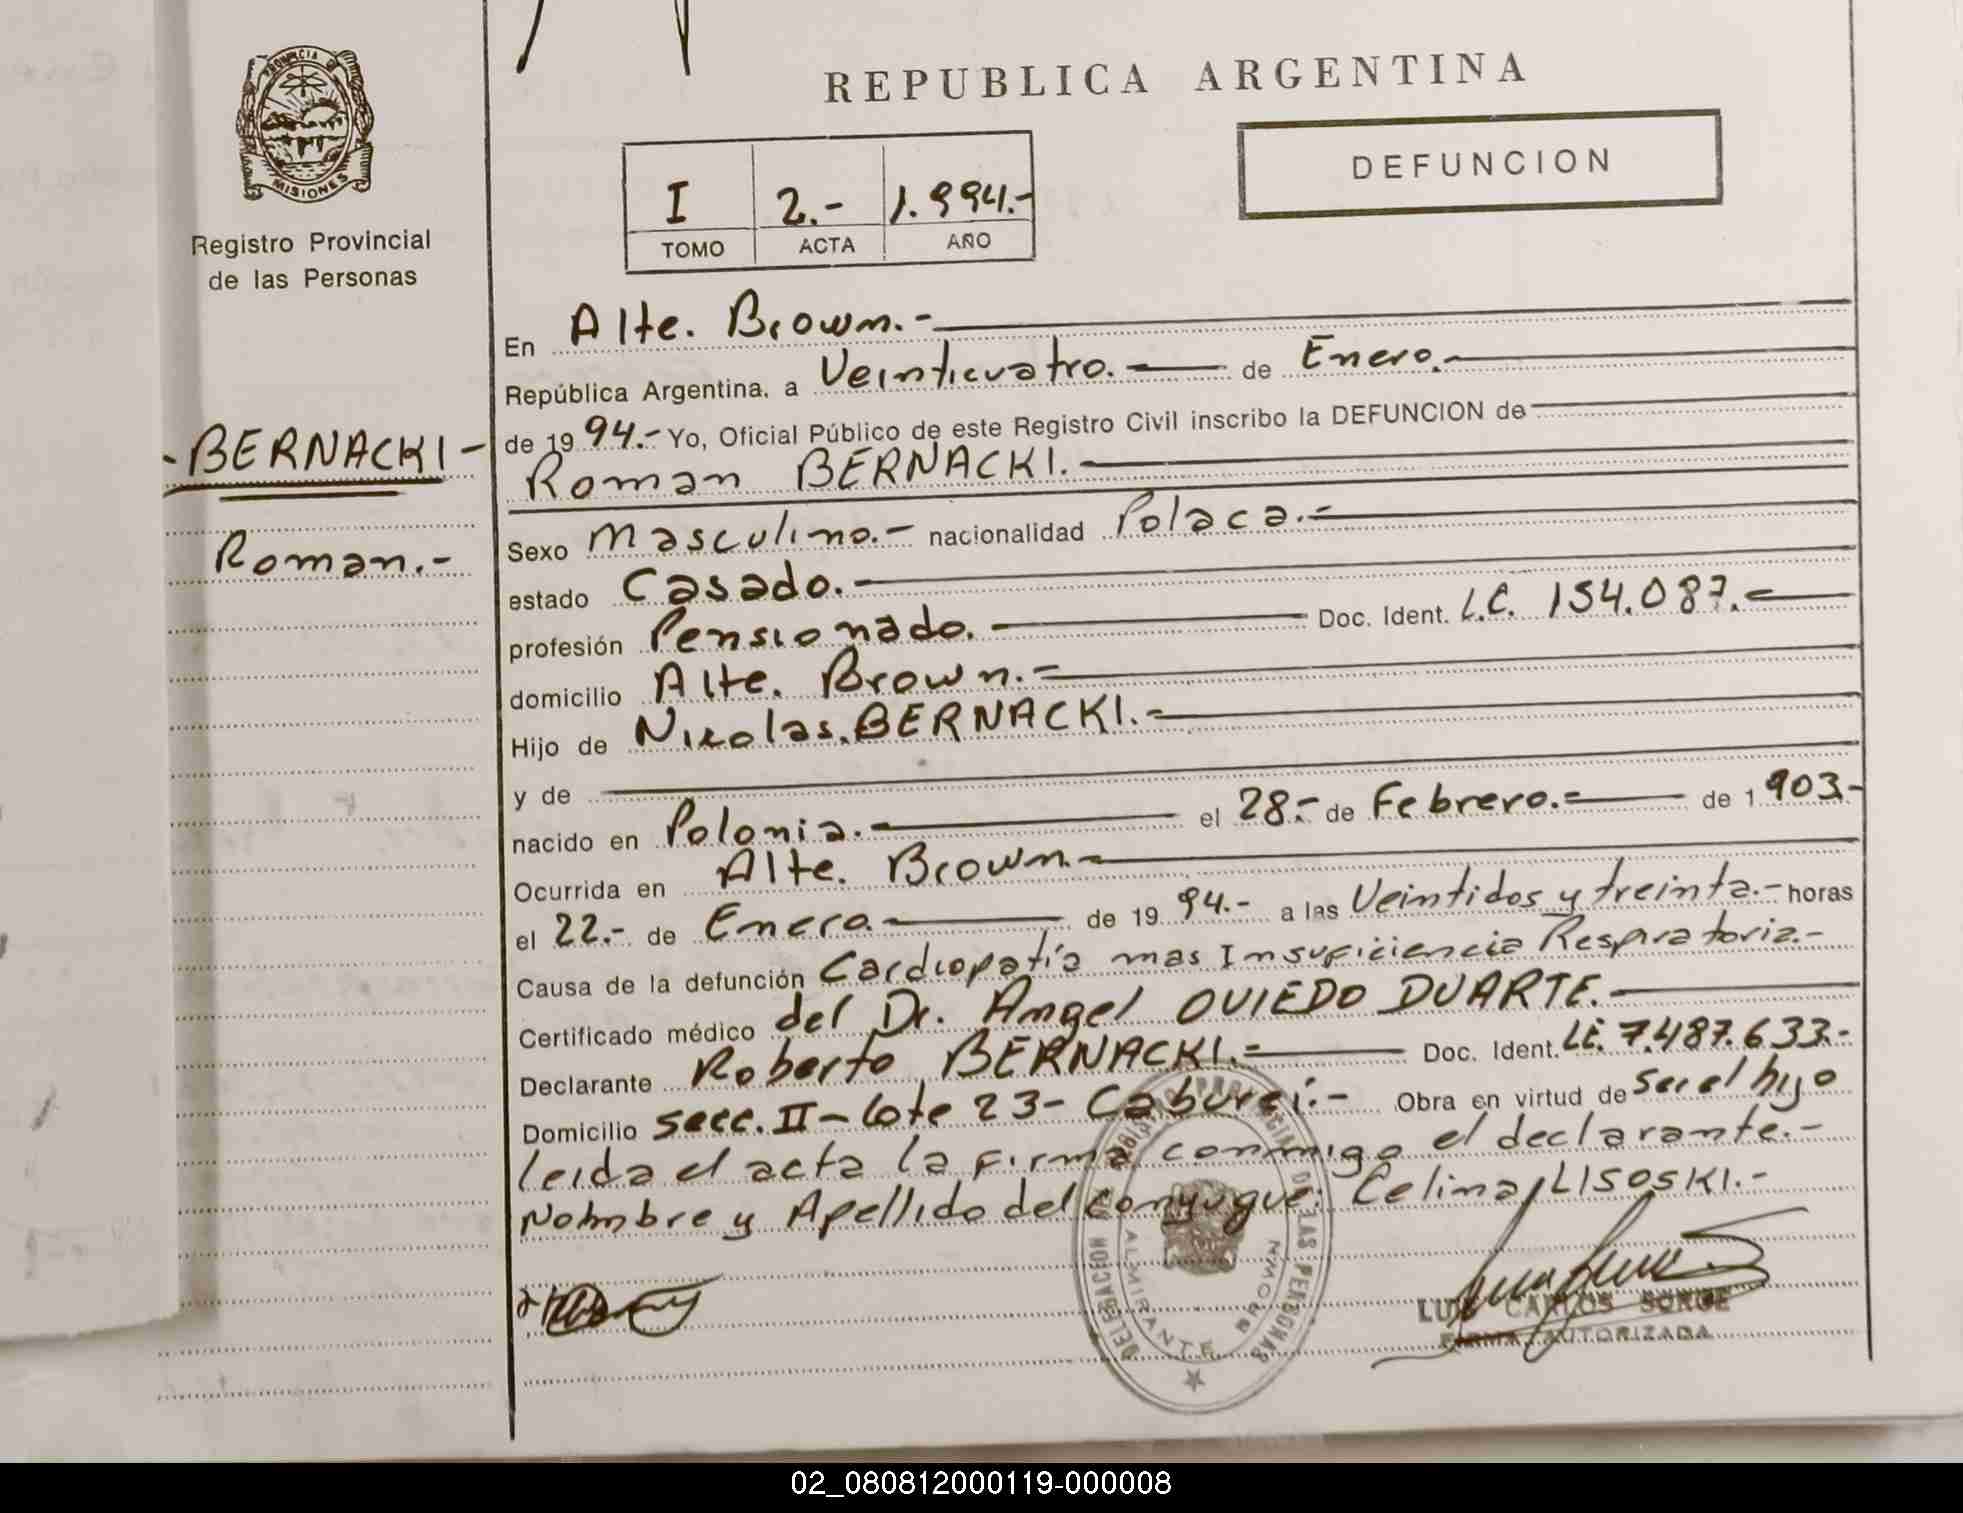 PROVINCIA DE
MISIONES
Registro Provincial
de las Personas
- BERNACKI -
Roman.-
REPUBLICA ARGENTINA
DEFUNCION
I 2.- 1.994.-
TOMO ACTA AÑO
En Alte. Brown.-
República Argentina, a Veinticuatro. de Enero.
de 19 94.- Yo, Oficial Público de este Registro Civil inscribo la DEFUNCION de
Roman BERNACKI.
Sexo Masculino.- nacionalidad Polaca.-
estado Casado.-
profesión Pensionado. Doc. Ident. L.C. 154.087.-
domicilio Alte. Brown.-
Hijo de Nicolas. BERNACKI.-
y de
nacido en Polonia. el 28.- de Febrero.- de 1 903.-
Ocurrida en Alte. Brown.-
el 22.- de Enero. de 19 94.- a las Veintidos y treinta.- horas
Causa de la defunción Cardiopatía mas Insuficiencia Respiratoria.-
Certificado médico del Dr. Angel OVIEDO DUARTE.
Declarante Roberto BERNACKI.- Doc. Ident. LE. 7.487.633.-
Domicilio secc. II - lote 23 - Caburei.- Obra en virtud de ser el hijo
leida el acta la firma conmigo el declarante.-
Nombre y Apellido del conyugue: Celina, LISOSKI.-
DELEGACION DE REGISTRO PROVINCIAL DE LAS PERSONAS
ALMIRANTE BROWN
LUIS CARLOS SORGE
FIRMA AUTORIZADA
02_080812000119-000008